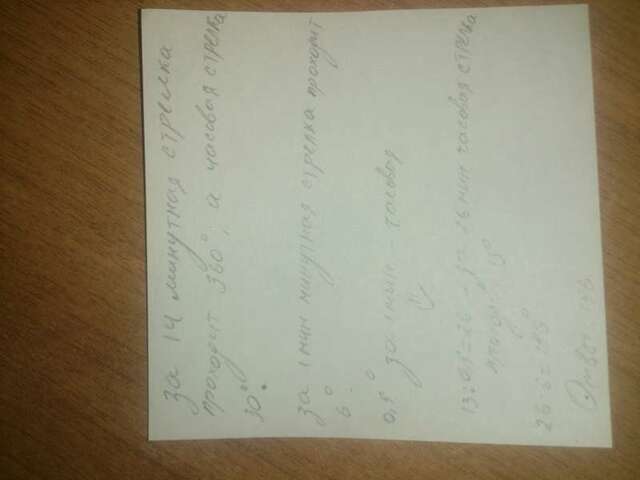 за 1ч минутная стрелка
проходит 360°, а часовая стрелка
30°.
за 1 мин минутная стрелка проходит
6°
0,5° за 1 мин - часовая
13:0,5=26 - за 26 мин часовая стрелка
13°
26·6=
Ответ: